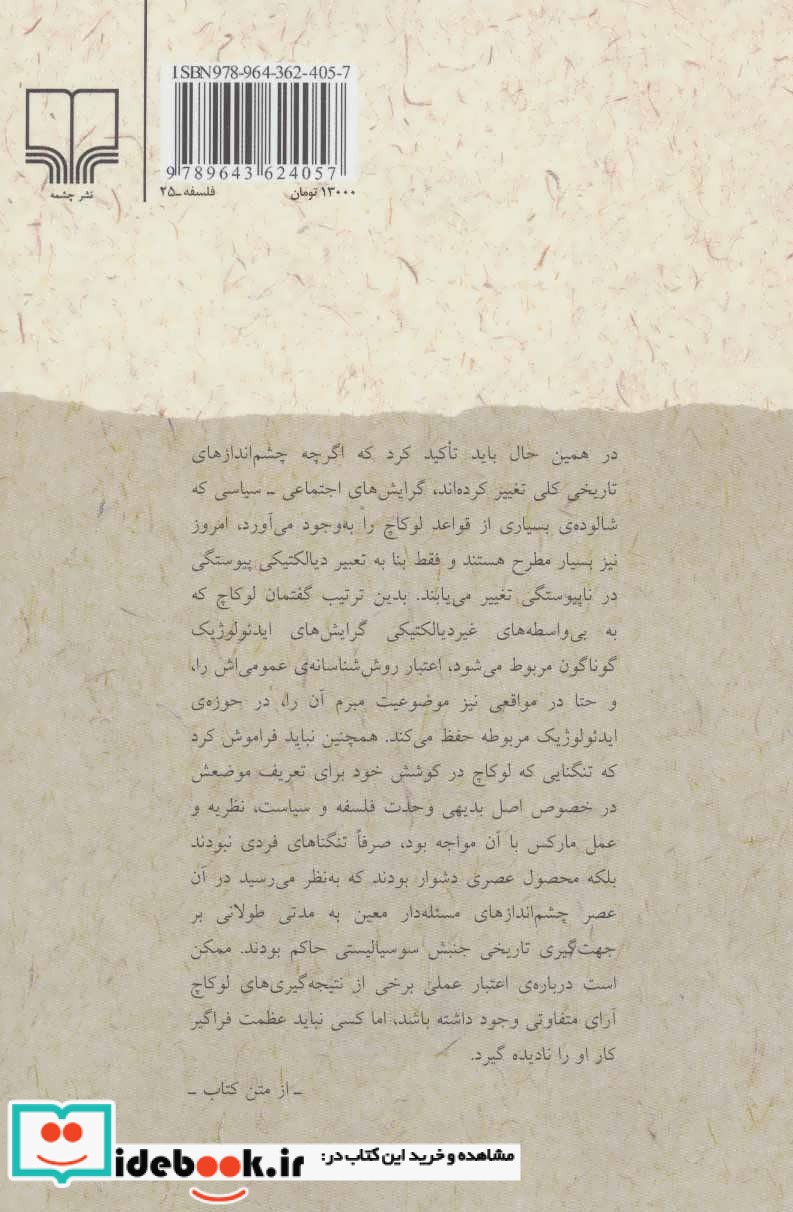 ISBN978-964-362-405-7
9 789643 624057
۱۳۰۰۰ تومان
فلسفه ـ۲۵
نشر چشمه
در همین حال باید تأکید کرد که اگرچه چشم‌اندازهای
تاریخی کلی تغییر کرده‌اند، گرایش‌های اجتماعی ـ سیاسی که
شالوده‌ی بسیاری از قواعد لوکاچ را به‌وجود می‌آورد، امروز
نیز بسیار مطرح هستند و فقط بنا به تعبیر دیالکتیکی پیوستگی
در ناپیوستگی تغییر می‌یابند. بدین ترتیب گفتمان لوکاچ که
به بی‌واسطه‌های غیردیالکتیکی گرایش‌های ایدئولوژیک
گوناگون مربوط می‌شود، اعتبار روش‌شناسانه‌ی عمومی‌اش را،
و حتا در مواقعی نیز موضوعیت مبرم آن را، در حوزه‌ی
ایدئولوژیک مربوطه حفظ می‌کند. همچنین نباید فراموش کرد
که تنگنایی که لوکاچ در کوشش خود برای تعریف موضعش
در خصوص اصل بدیهی وحدت فلسفه و سیاست، نظریه و
عمل مارکس با آن مواجه بود، صرفاً تنگناهای فردی نبودند
بلکه محصول عصری دشوار بودند که به‌نظر می‌رسید در آن
عصر چشم‌اندازهای مسئله‌دار معین به مدتی طولانی بر
جهت‌گیری تاریخی جنبش سوسیالیستی حاکم بودند. ممکن
است درباره‌ی اعتبار عملی برخی از نتیجه‌گیری‌های لوکاچ
آرای متفاوتی وجود داشته باشد، اما کسی نباید عظمت فراگیر
کار او را نادیده گیرد.
ـ از متن کتاب ـ
مشاهده و خرید این کتاب در:
idebook.ir